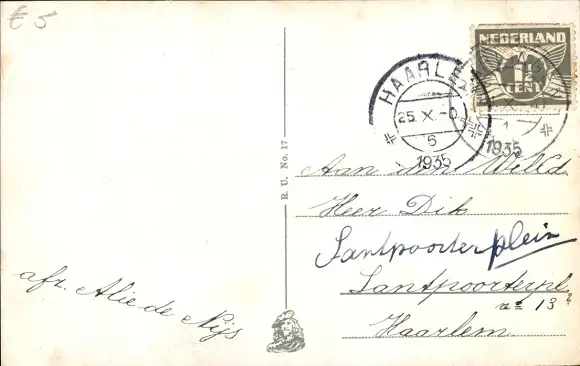 € 5
NEDERLAND
1½
CENT
HAARLEM
25.X.-0
6
1935
1935
1
R. U. No. 17
Aan den Weled.
Heer Dik
Santpoorterplein
Santpoorterpl
no 13
Haarlem
afz. Alie de Nijs